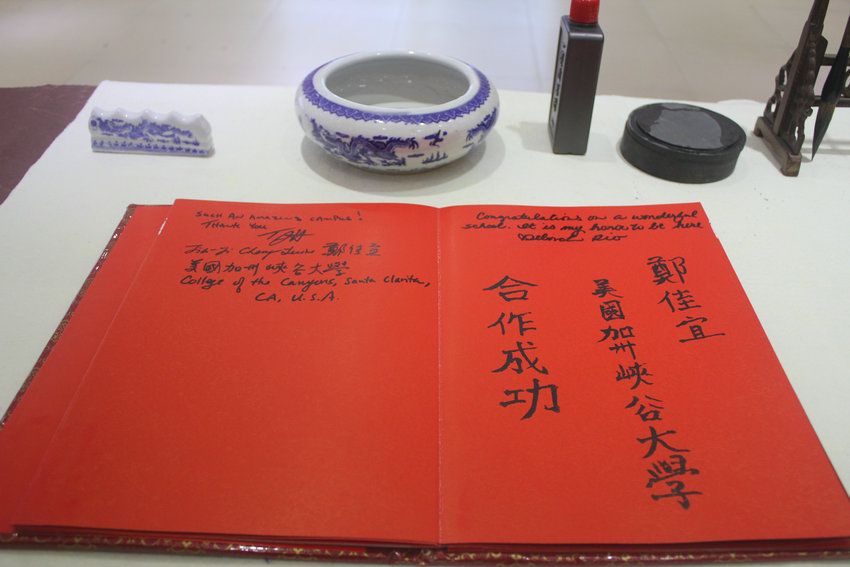 Such An Amazing campus!
Thank You
Jia-Yi Cheng-Levine 鄭佳宜
美國加州峽谷大學
College of the Canyons, Santa Clarita,
CA, U.S.A.
Congratulations on a wonderful
school. It is my honor to be here
Deborah Rio
鄭佳宜
美國加州峽谷大學
合作成功